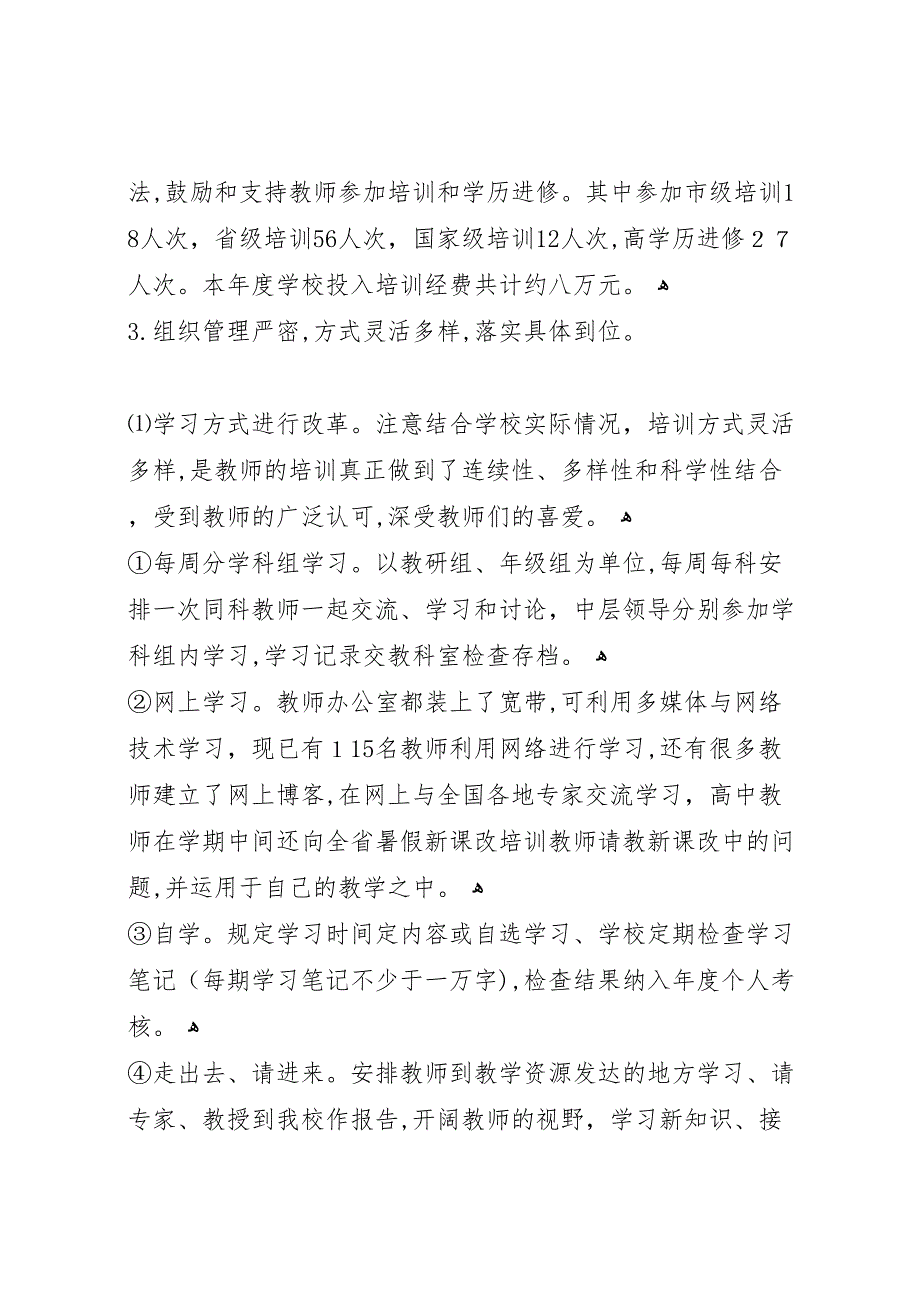 法,鼓励和支持教师参加培训和学历进修。其中参加市级培训1
8人次，省级培训56人次，国家级培训12人次,高学历进修２７
人次。本年度学校投入培训经费共计约八万元。 ﻫ
3.组织管理严密,方式灵活多样,落实具体到位。
⑴学习方式进行改革。注意结合学校实际情况，培训方式灵活
多样,是教师的培训真正做到了连续性、多样性和科学性结合
，受到教师的广泛认可,深受教师们的喜爱。 ﻫ
①每周分学科组学习。以教研组、年级组为单位,每周每科安
排一次同科教师一起交流、学习和讨论，中层领导分别参加学
科组内学习,学习记录交教科室检查存档。 ﻫ
②网上学习。教师办公室都装上了宽带,可利用多媒体与网络
技术学习，现已有１15名教师利用网络进行学习,还有很多教
师建立了网上博客,在网上与全国各地专家交流学习，高中教
师在学期中间还向全省暑假新课改培训教师请教新课改中的问
题,并运用于自己的教学之中。 ﻫ
③自学。规定学习时间定内容或自选学习、学校定期检查学习
笔记（每期学习笔记不少于一万字),检查结果纳入年度个人考
核。 ﻫ
④走出去、请进来。安排教师到教学资源发达的地方学习、请
专家、教授到我校作报告,开阔教师的视野，学习新知识、接